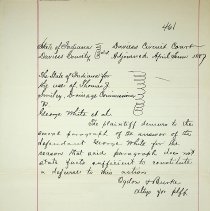 461
State of Indiana } Daviess Circuit Court
Daviess County } Adjourned April Term 1887
The State of Indiana for
the use of Thomas J.
Smiley, Drainage Commissioner
vs
George White et al.
The plaintiff demurs to the
second paragraph of the answer of the
defendant George White for the
reason that said paragraph does not
state facts sufficient to constitute
a defense to this action.
Ogdon & Burke
Attys for plff.